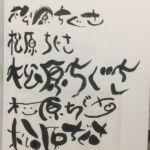 松原ちぐさ
松原ちぐさ
松原ちぐさ
松原ちぐさ
松原ちぐさ